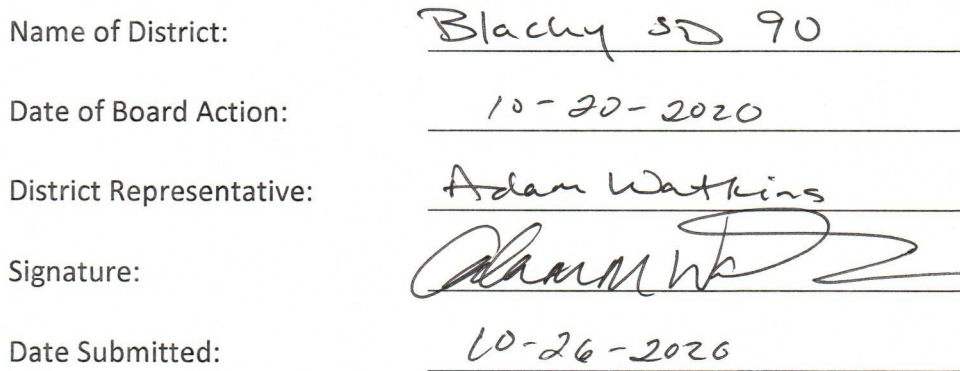 Name of District: Blachy SD 90
Date of Board Action: 10-20-2020
District Representative: Adam Watkins
Signature:
Date Submitted: 10-26-2020